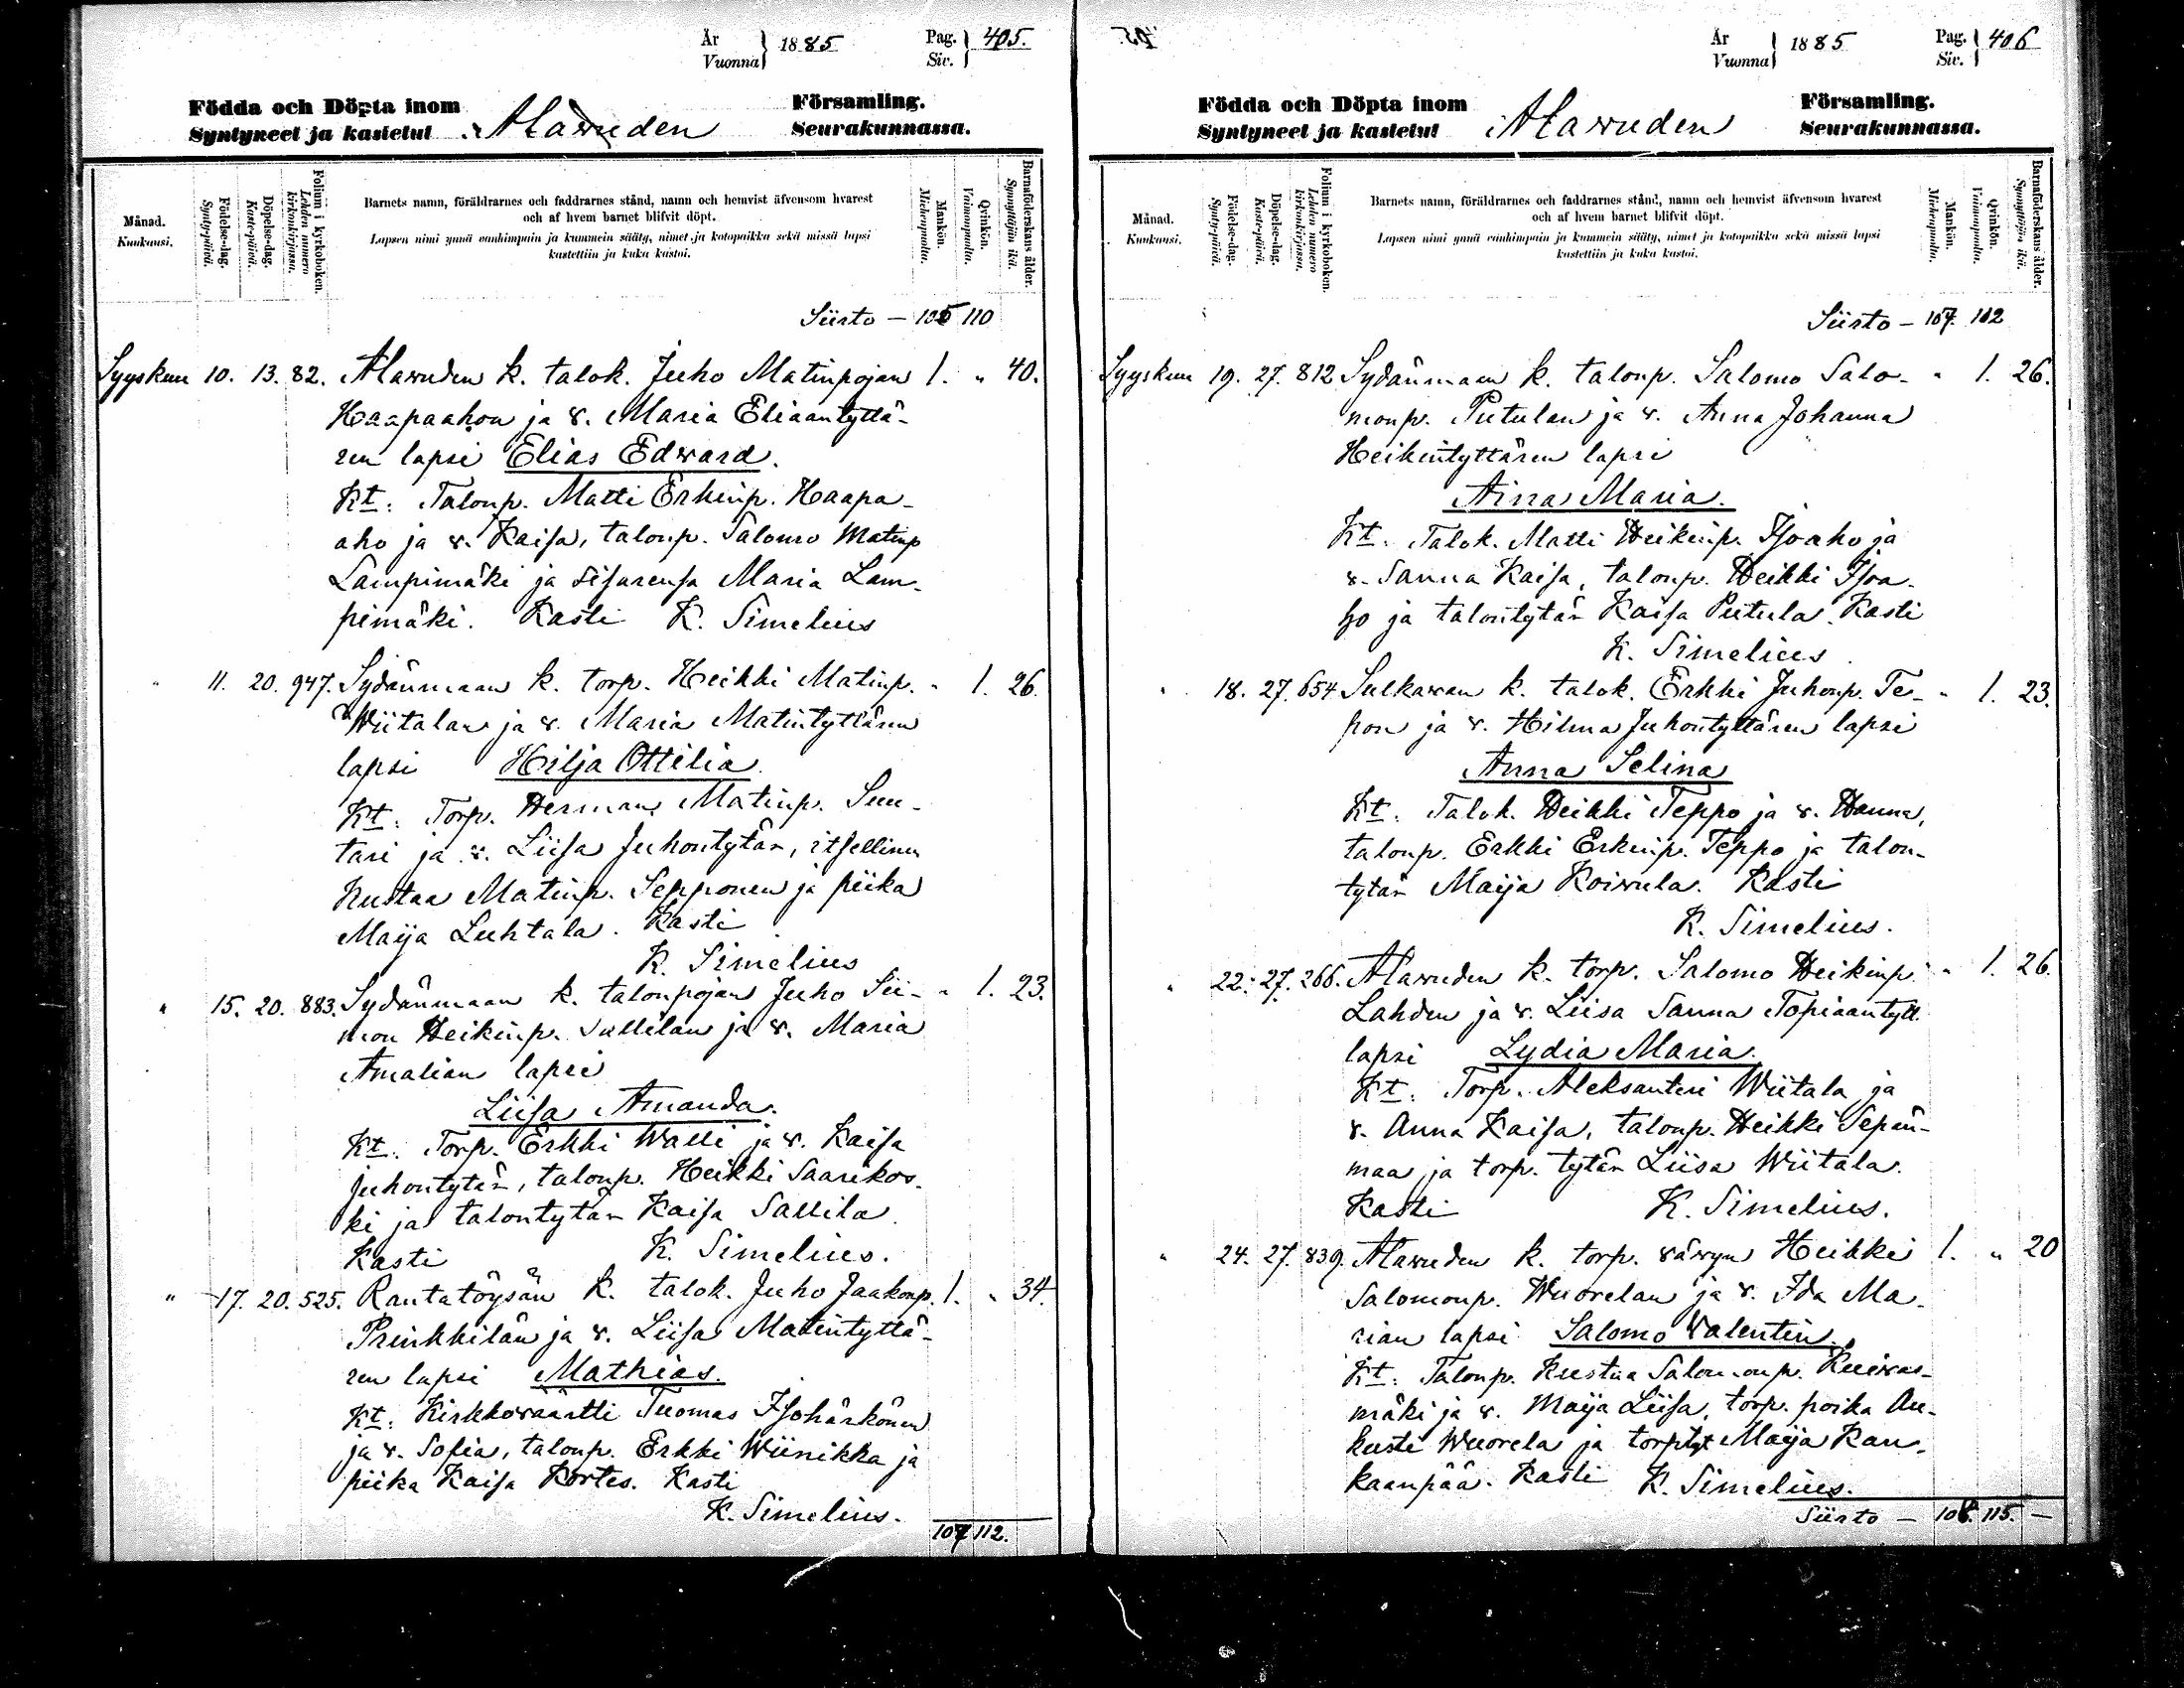 År Vuonna } 1885 Pag. Siv. } 405.
Födda och Döpta inom Församling.
Syntyneet ja kastetut Alawuden Seurakunnassa.
Månad. Kuukausi.
Födelse-dag. Synty-päivä.
Döpelse-dag. Kaste-päivä.
Folium i kyrkoboken. Lehden numero kirkonkirjassa.
Barnets namn, föräldrarnes och faddrarnes stånd, namn och hemvist äfvensom hvarest
och af hvem barnet blifvit döpt.
Lapsen nimi ynnä vanhimpain ja kummein sääty, nimet ja kotopaikka sekä missä lapsi
kastettiin ja kuka kastoi.
Mankön. Miehenpuolia.
Qvinkön. Vaimonpuolia.
Barnaföderskans ålder. Synnyttäjän ikä.
Siirto — 105 110
Syyskuu 10. 13. 82. Alawuden k. talok. Juho Matinpojan 1. " 40.
Haapaahon ja v. Maria Eliaantyttä-
ren lapsi Elias Edward.
Kt: Talonp. Matti Erkinp. Haapa-
aho ja v. Kaisa, talonp. Salomo Matinp
Lampimäki ja sisarensa Maria Lam-
pimäki. Kasti K. Simelius
" 11. 20. 947. Sydänmaan k. torp. Heikki Matinp. " 1. 26.
Wiitalan ja v. Maria Matintyttären
lapsi Hilja Ottilia.
Kt: Torp. Herman Matinp. Suu-
tari ja v. Liisa Juhontytär, itsellinen
Kustaa Matinp. Sepponen ja piika
Maija Luhtala. Kasti
K. Simelius
" 15. 20. 883. Sydänmaan k. talonpojan Juho Sii- " 1. 23.
mon Heikinp. Sallilan ja v. Maria
Amalian lapsi
Liisa Amanda.
Kt: Torp. Erkki Walli ja v. Kaisa
Juhontytär, talonp. Heikki Saarikos-
ki ja talontytär Kaisa Sallila
Kasti K. Simelius.
" 17. 20. 525. Rantatöysän k. talok. Juho Jaakonp. 1. " 34.
Prinkkilän ja v. Liisa Matintyttä-
ren lapsi Mathias.
Kt: Kirkkowäärtti Tuomas Isohärkönen
ja v. Sofia, talonp. Erkki Wiinikka ja
piika Kaisa Kortes. Kasti
K. Simelius.
107 112.
År Vuonna } 1885 Pag. Siv. } 406
Födda och Döpta inom Församling.
Syntyneet ja kastetut Alawuden Seurakunnassa.
Månad. Kuukausi.
Födelse-dag. Synty-päivä.
Döpelse-dag. Kaste-päivä.
Folium i kyrkoboken. Lehden numero kirkonkirjassa.
Barnets namn, föräldrarnes och faddrarnes stånd, namn och hemvist äfvensom hvarest
och af hvem barnet blifvit döpt.
Lapsen nimi ynnä vanhimpain ja kummein sääty, nimet ja kotopaikka sekä missä lapsi
kastettiin ja kuka kastoi.
Mankön. Miehenpuolia.
Qvinkön. Vaimonpuolia.
Barnaföderskans ålder. Synnyttäjän ikä.
Siirto — 107. 112
Syyskuu 19. 27. 812 Sydänmaan k. talonp. Salomo Salo- " 1. 26.
monp. Putulan ja v. Anna Johanna
Heikintyttären lapsi
Aina Maria.
Kt. Talok. Matti Heikinp. Isoaho ja
v. Sanna Kaisa, talonp. Heikki Isoa-
ho ja talontytär Kaisa Putula. Kasti
K. Simelius.
" 18. 27. 654 Sulkawan k. talok. Erkki Juhonp. Te- " 1. 23.
pon ja v. Hilma Juhontyttären lapsi
Anna Selina
Kt. Talok. Heikki Teppo ja v. Hanna,
talonp. Erkki Erkinp. Teppo ja talon-
tytär Maija Koiwula. Kasti
K. Simelius.
" 22. 27. 266. Alawuden k. torp. Salomo Heikinp. " 1. 26.
Lahden ja v. Liisa Sanna Topiaantytt.
lapsi Lydia Maria.
Kt. Torp. Aleksanteri Wiitala ja
v. Anna Kaisa, talonp. Heikki Sepän-
maa ja torp. tytär Liisa Wiitala.
Kasti K. Simelius.
" 24. 27. 839. Alawuden k. torp. väwyn Heikki 1. " 20
Salomonp. Wuorelan ja v. Ida Ma-
rian lapsi Salomo Valentin.
Kt: Talonp. Kustaa Salomonp. Kuiwas-
mäki ja v. Maija Liisa, torp. poika Au-
kusti Wuorela ja torptyt Maija Kan-
kaanpää. Kasti K. Simelius.
Siirto — 108. 115. —